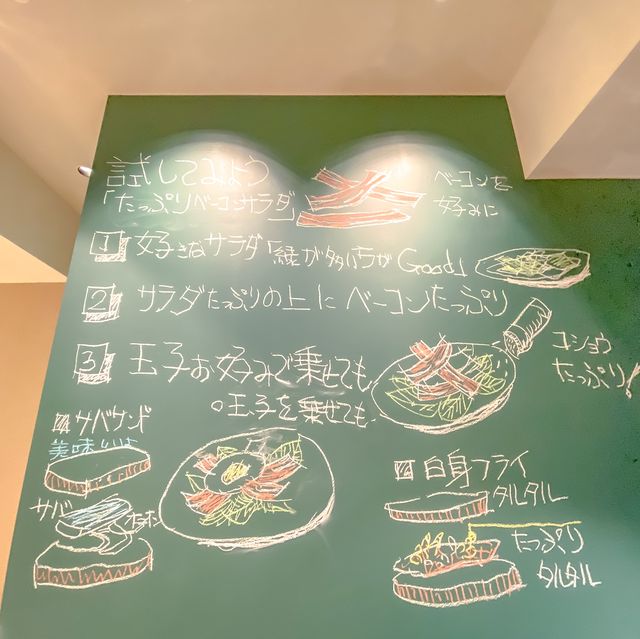 試してみよう
「たっぷりベーコンサラダ」
ベーコンを
好みに
1 好きなサラダ「緑が多い方がGood」
2 サラダたっぷりの上にベーコンたっぷり
3 玉子お好みで乗せても
○玉子を乗せても
コショウ
たっぷり!
サバサンド
美味しいよ
サバ
白身フライ
タルタル
たっぷり
タルタル